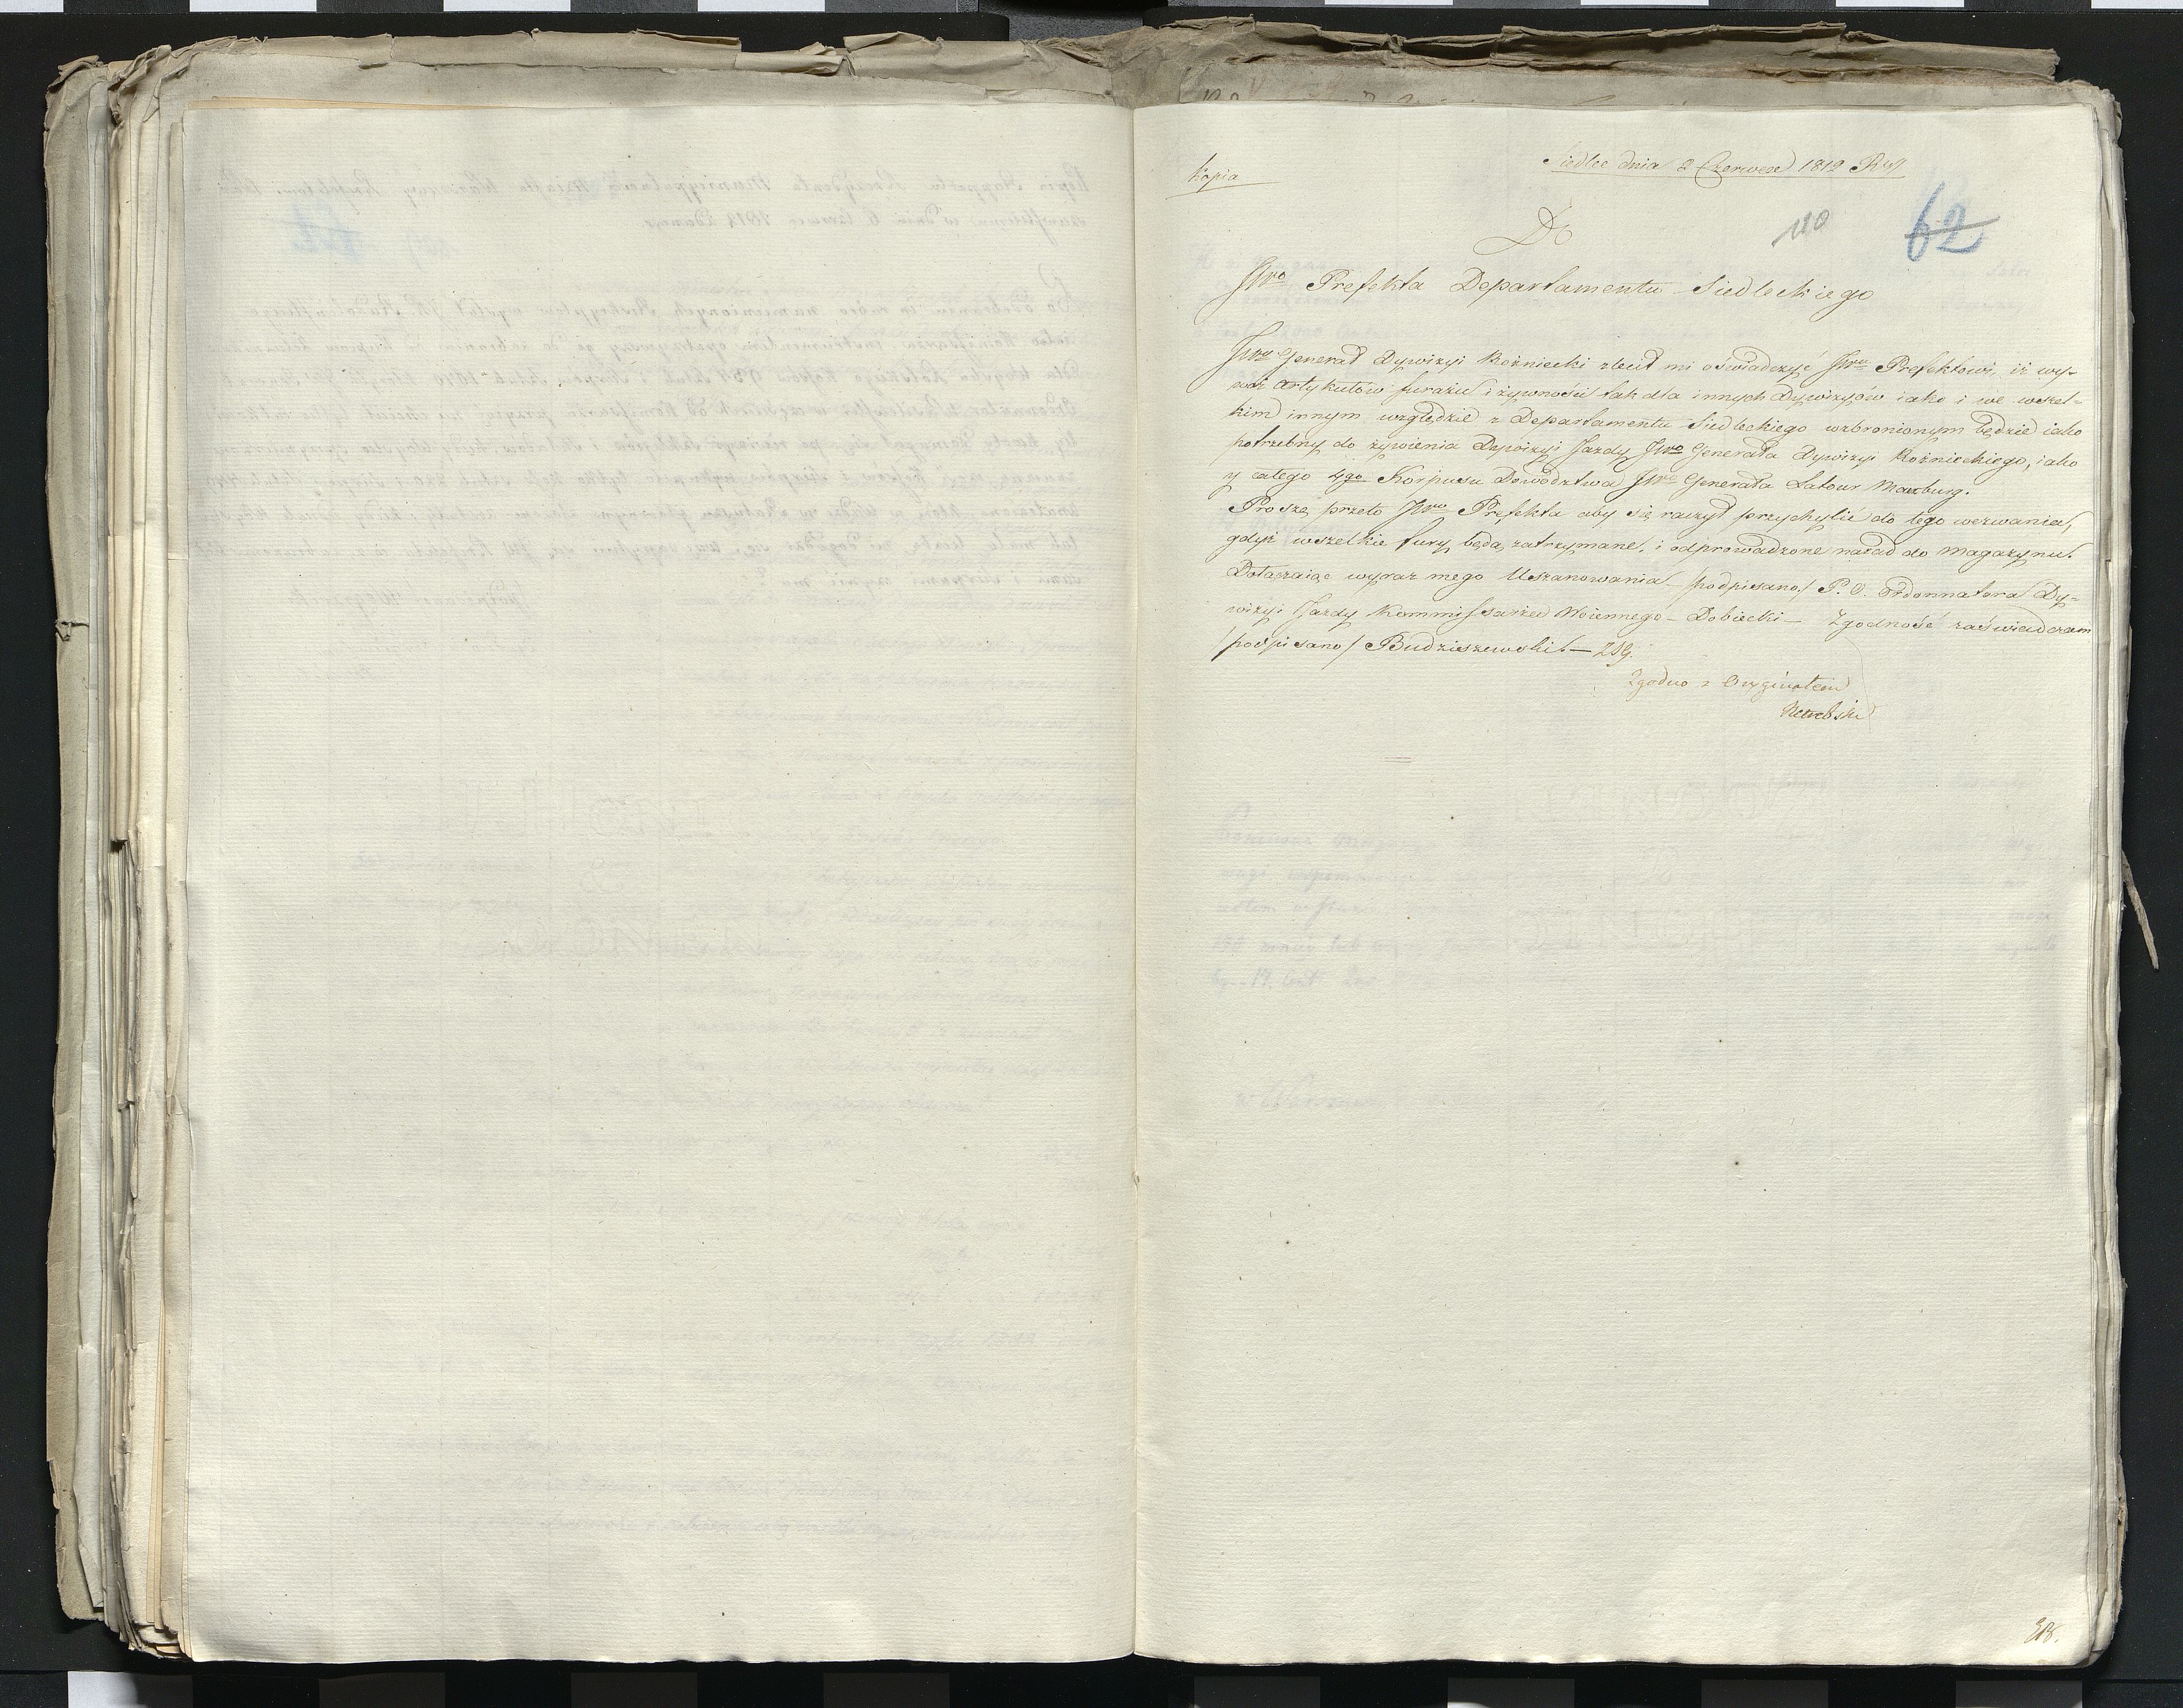 Kopia
Siedlce dnia 2 Czerwca 1812 Rku
110
62
Do
JWo Prefekta Departamentu Siedleckiego
JWny Generał Dywizyi Rożniecki zlecił mi oświadczyć JWu Prefektowi, iż wy-
woz artykułów furażu i żywności tak dla innych Dywizyów iako i we wszel-
kim innym względzie z Departamentu Siedleckiego wzbronionym będzie iako
potrzebny do żywienia Dywizyi Jazdy JWo Generała Dywizyi Rożnieckiego, iako
y całego 4go Korpusu Dowodztwa JWo Generała Latour Maxburg.
Proszę przeto JWo Prefekta aby się raczył przychylić do tego wezwania,
gdyż wszelkie fury będą zatrzymane, i odprowadzone nazad do Magazynu.
Dołączaiąc wyraz mego Uszanowania – /podpisano/ P. O. Ordonnatora Dy-
wizyi Jazdy Kommissarza Woiennego – Dobiecki – Zgodność zaświadczam
/podpisano/ Budziszewski. –
Zgodno z Oryginałem